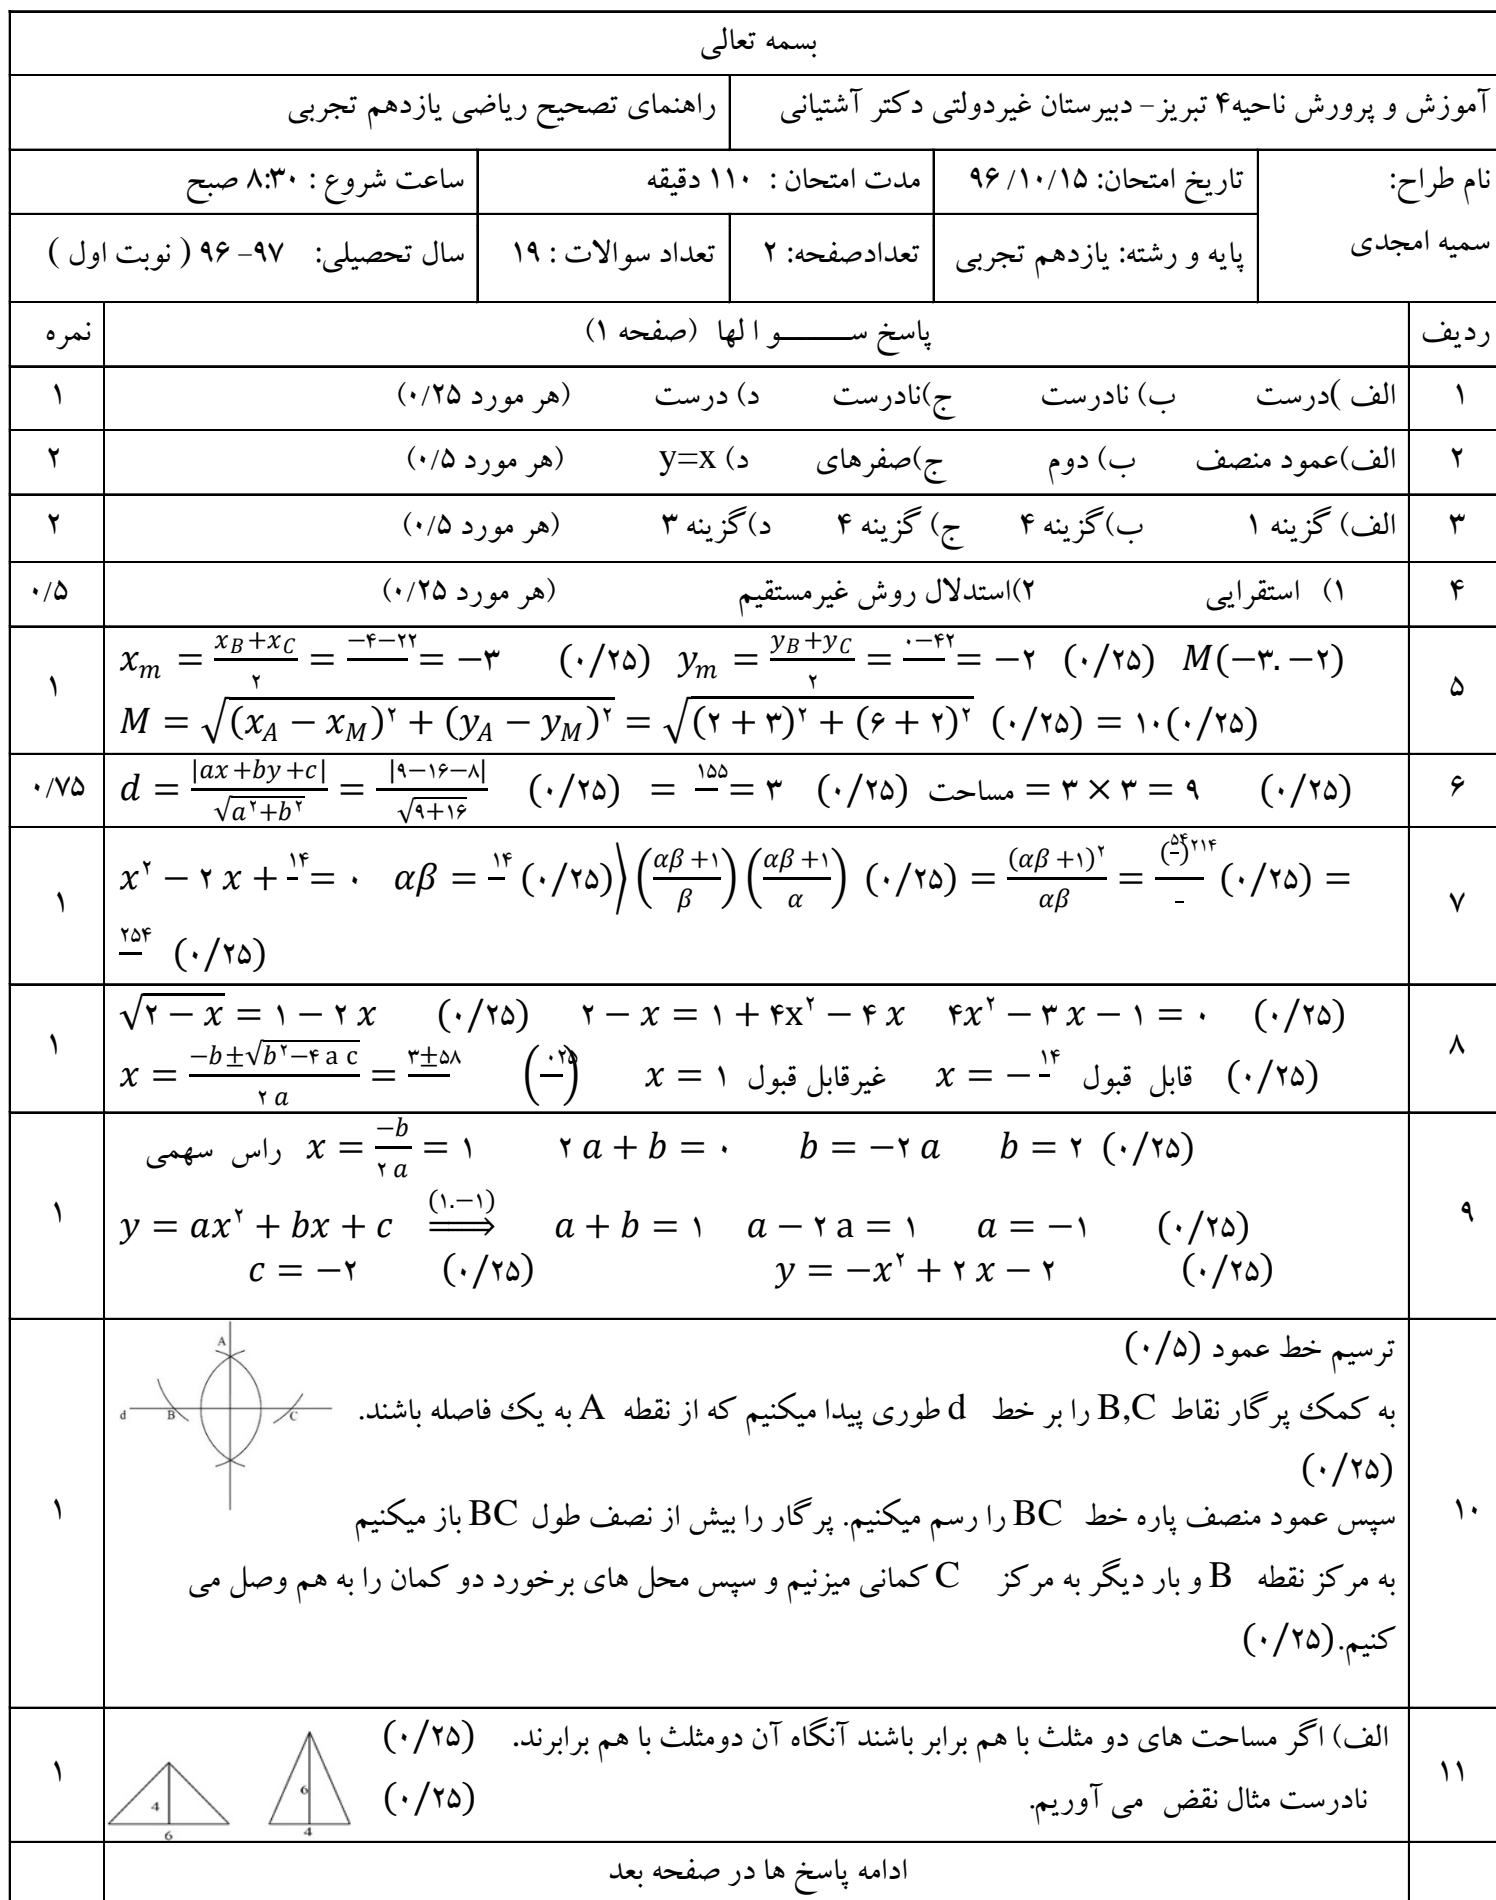 بسمه تعالی
آموزش و پرورش ناحیه۴ تبریز- دبیرستان غیردولتی دکتر آشتیانی راهنمای تصحیح ریاضی یازدهم تجربی
نام طراح: تاریخ امتحان: ۹۶/۱۰/۱۵ مدت امتحان : ۱۱۰ دقیقه ساعت شروع : ۸:۳۰ صبح
سمیه امجدی پایه و رشته: یازدهم تجربی تعدادصفحه: ۲ تعداد سوالات : ۱۹ سال تحصیلی: ۹۷-۹۶ ( نوبت اول )
ردیف پاسخ ســـــو ا لها (صفحه ۱) نمره
۱ الف )درست ب) نادرست ج)نادرست د) درست (هر مورد ۰/۲۵) ۱
۲ الف)عمود منصف ب) دوم ج)صفرهای د) y=x (هر مورد ۰/۵) ۲
۳ الف) گزینه ۱ ب)گزینه ۴ ج) گزینه ۴ د)گزینه ۳ (هر مورد ۰/۵) ۲
۴ ۱) استقرایی ۲)استدلال روش غیرمستقیم (هر مورد ۰/۲۵) ۰/۵
۵ x_m = (x_B+x_C)/۲ = −۴−۲۲ = −۳ (۰/۲۵) y_m = (y_B+y_C)/۲ = ۰−۴۲ = −۲ (۰/۲۵) M(−۳.−۲)
M = √((x_A − x_M)^۲ + (y_A − y_M)^۲) = √((۲ + ۳)^۲ + (۶ + ۲)^۲) (۰/۲۵) = ۱۰(۰/۲۵) ۱
۶ d = |ax+by+c|/√(a^۲+b^۲) = |۹−۱۶−۸|/√(۹+۱۶) (۰/۲۵) = ۱۵۵ = ۳ (۰/۲۵) مساحت = ۳ × ۳ = ۹ (۰/۲۵) ۰/۷۵
۷ x^۲ − ۲x + ۱۴ = ۰ αβ = ۱۴ (۰/۲۵)⟩ ((αβ+۱)/β)((αβ+۱)/α) (۰/۲۵) = (αβ+۱)^۲/αβ = (۵۴)^۲۱۴ (۰/۲۵) =
۲۵۴ (۰/۲۵) ۱
۸ √(۲ − x) = ۱ − ۲x (۰/۲۵) ۲ − x = ۱ + ۴x^۲ − ۴x ۴x^۲ − ۳x − ۱ = ۰ (۰/۲۵)
x = (−b±√(b^۲−۴ac))/۲a = ۳±۵۸ (۰۲۵) x = ۱ غیرقابل قبول x = −۱۴ قابل قبول (۰/۲۵) ۱
۹ راس سهمی x = −b/۲a = ۱ ۲a + b = ۰ b = −۲a b = ۲ (۰/۲۵)
y = ax^۲ + bx + c ⟹(۱.−۱) a + b = ۱ a − ۲a = ۱ a = −۱ (۰/۲۵)
c = −۲ (۰/۲۵) y = −x^۲ + ۲x − ۲ (۰/۲۵) ۱
۱۰ ترسیم خط عمود (۰/۵)
به کمک پرگار نقاط B,C را بر خط d طوری پیدا میکنیم که از نقطه A به یک فاصله باشند.
(۰/۲۵)
سپس عمود منصف پاره خط BC را رسم میکنیم. پرگار را بیش از نصف طول BC باز میکنیم
به مرکز نقطه B و بار دیگر به مرکز C کمانی میزنیم و سپس محل های برخورد دو کمان را به هم وصل می
کنیم.(۰/۲۵) ۱
A
d B C
۱۱ الف) اگر مساحت های دو مثلث با هم برابر باشند آنگاه آن دومثلث با هم برابرند. (۰/۲۵)
نادرست مثال نقض می آوریم. (۰/۲۵) ۱
4 6
6 4
ادامه پاسخ ها در صفحه بعد